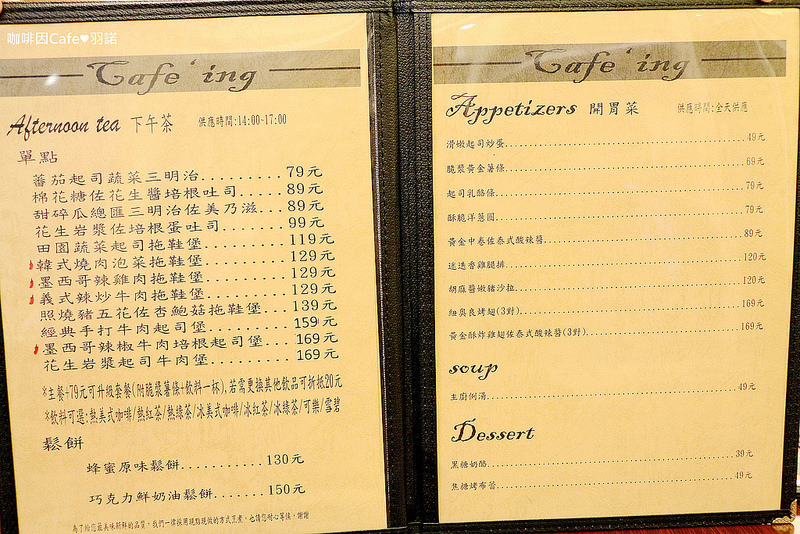 咖啡因Cafe♥羽諾
Cafe'ing
Afternoon tea 下午茶 供應時間:14:00~17:00
單點
蕃茄起司蔬菜三明治.........79元
棉花糖佐花生醬培根吐司......89元
甜碎瓜總匯三明治佐美乃滋...89元
花生岩漿佐培根蛋吐司.......99元
田園蔬菜起司拖鞋堡.........119元
韓式燒肉泡菜拖鞋堡.........129元
墨西哥辣雞肉拖鞋堡.........129元
義式辣炒牛肉拖鞋堡.........129元
照燒豬五花佐杏鮑菇拖鞋堡...139元
經典手打牛肉起司堡.........159元
墨西哥辣椒牛肉培根起司堡...169元
花生岩漿起司牛肉堡.........169元
※主餐+79元可升級套餐(附脆漿薯條+飲料一杯),若需更換其他飲品可折抵20元
※飲料可選:熱美式咖啡/熱紅茶/熱綠茶/冰美式咖啡/冰紅茶/冰綠茶/可樂/雪碧
鬆餅
蜂蜜原味鬆餅...........130元
巧克力鮮奶油鬆餅.......150元
為了給您最美味新鮮的品質，我們一律採用現點現做的方式烹煮，也請您耐心等候，謝謝
Cafe'ing
Appetizers 開胃菜 供應時間:全天供應
滑嫩起司炒蛋...49元
脆漿黃金薯條...69元
起司乳酪條...79元
酥脆洋蔥圈...79元
黃金中卷佐泰式酸辣醬...89元
迷迭香雞腿排...120元
胡麻醬嫩豬沙拉...120元
紐奧良烤翅(3對)...169元
黃金酥炸雞翅佐泰式酸辣醬(3對)...169元
soup
主廚例湯...49元
Dessert
黑糖奶酪...39元
焦糖烤布蕾...49元